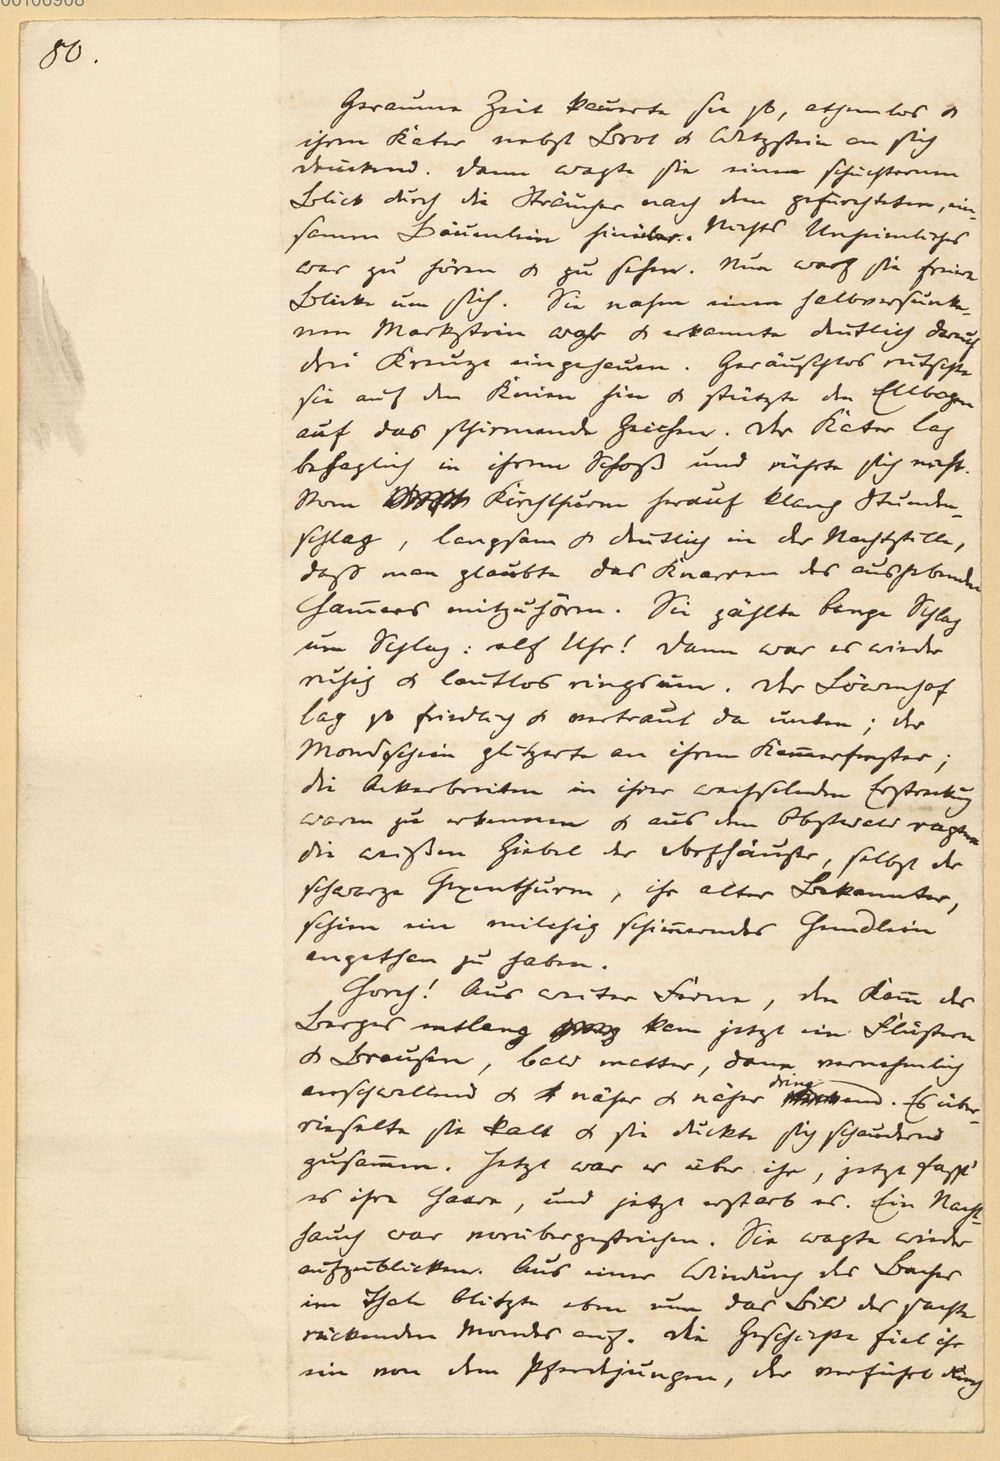 00106908
80.
Geraume Zeit kauerte sie so, athemlos &
ihren Kater nebst Brot & Wetzstein an sich
drückend. Dann wagte sie einen schüchternen
Blick durch die Sträucher nach dem gefürchteten, ein-
samen Bäumlein hinüber. Nichts Unheimliches
war zu hören & zu sehen. Nun warf sie freiere
Blicke um sich. Sie nahm einen halbversunke-
nen Markstein wahr & erkannte deutlich darauf
drei Kreuze eingehauen. Geräuschlos rutschte
sie auf den Knien hin & stützte den Ellbogen
auf das schirmende Zeichen. Der Kater lag
behaglich in ihrem Schoß und rührte sich nicht.
Vom Kirchthurm herauf klang Stunden-
schlag, langsam & deutlich in der Nachtstille,
daß man glaubte das Knarren des aushebenden
Ham̄ers mitzuhören. Sie zählte bange Schlag
um Schlag: elf Uhr! Dann war es wieder
ruhig & lautlos ringsum. Der Löwenhof
lag so friedlich & vertraut da unten; der
Mondschein glitzerte an ihrem Kam̄erfenster;
die Ackerbreiten in ihrer wechselnden Erstreckung
waren zu erkennen & aus dem Obstwald ragten
die weißen Giebel der Dorfhäuser, selbst der
schwarze Hexenthurm, ihr alter Bekannter,
schien ein milchig schim̄erndes Hemdlein
angethan zu haben.
Horch! Aus weiter Ferne, den Kam̄ des
Berges entlang kam jetzt ein Flüstern
& Brausen, bald matter, dann vernehmlich
anschwellend & näher & näher dringend. Es über-
rieselte sie kalt & sie duckte sich schaudernd
zusam̄en. Jetzt war es über ihr, jetzt faßt'
es ihre Haare, und jetzt erstarb es. Ein Nacht-
hauch war vorübergestrichen. Sie wagte wieder
aufzublicken. Aus einer Windung des Baches
im Thale blitzte eben nun das Bild des sachte
rückenden Mondes auf. Die Geschichte fiel ihr
ein von dem Pferdejungen, der verführt durch